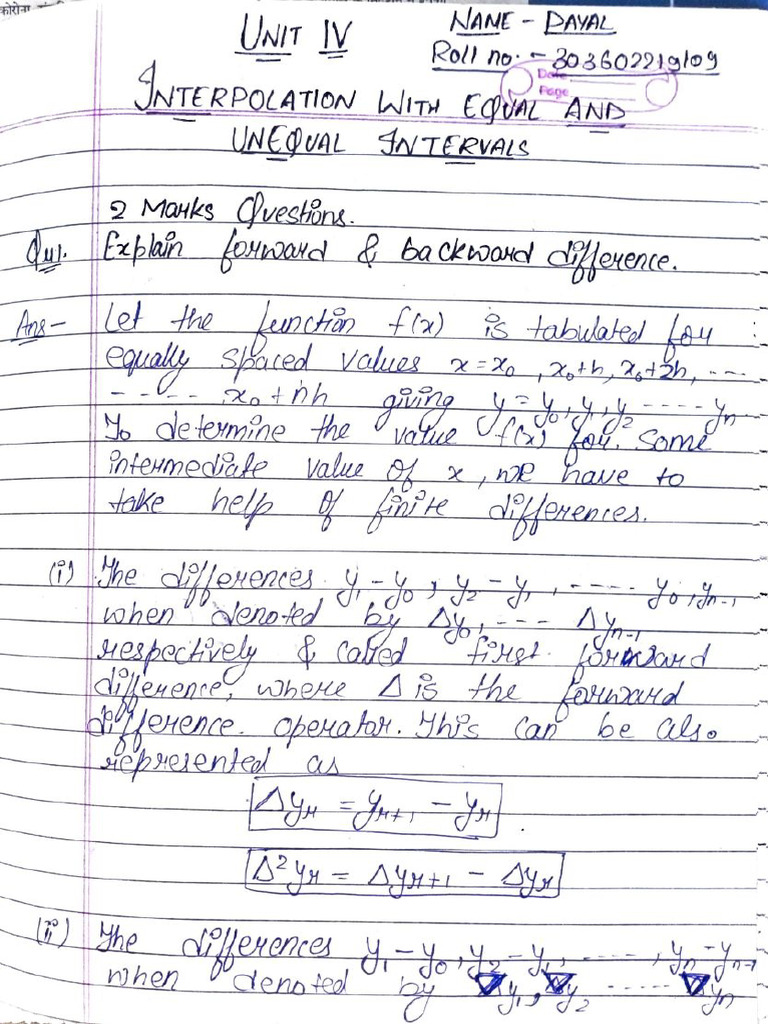 कोरोना
UNIT IV
NAME - DAYAL
Roll no. - 303602219109
Date
Page
INTERPOLATION WITH EQUAL AND
UNEQUAL INTERVALS
2 Marks Questions.
Qu1. Explain forward & backward difference.
Ans- Let the function f(x) is tabulated for
equally spaced values x = x₀, x₀+h, x₀+2h, ----
----- x₀ + nh giving y = y₀, y₁, y₂ ----- yₙ
To determine the value f(x) for some
intermediate value of x, we have to
take help of finite differences.
(i) The differences y₁ - y₀, y₂ - y₁, ----- y₀, yₙ₋₁
when denoted by Δy₀, --- Δyₙ₋₁
respectively & called first forward
difference, where Δ is the forward
difference operator. This can be also
represented as
Δyᵣ = yᵣ₊₁ - yᵣ
Δ²yᵣ = Δyᵣ₊₁ - Δyᵣ
(ii) The differences y₁ - y₀, y₂ - y₁, -----, yₙ - yₙ₋₁
when denoted by ∇y₁, ∇y₂ ----- ∇yₙ